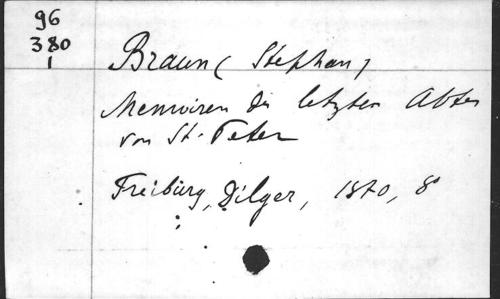 96
380
1
Braun (Stephan)
Memoiren des letzten Abtes
von St. Peter
Freiburg, Dilger, 1870, 8°